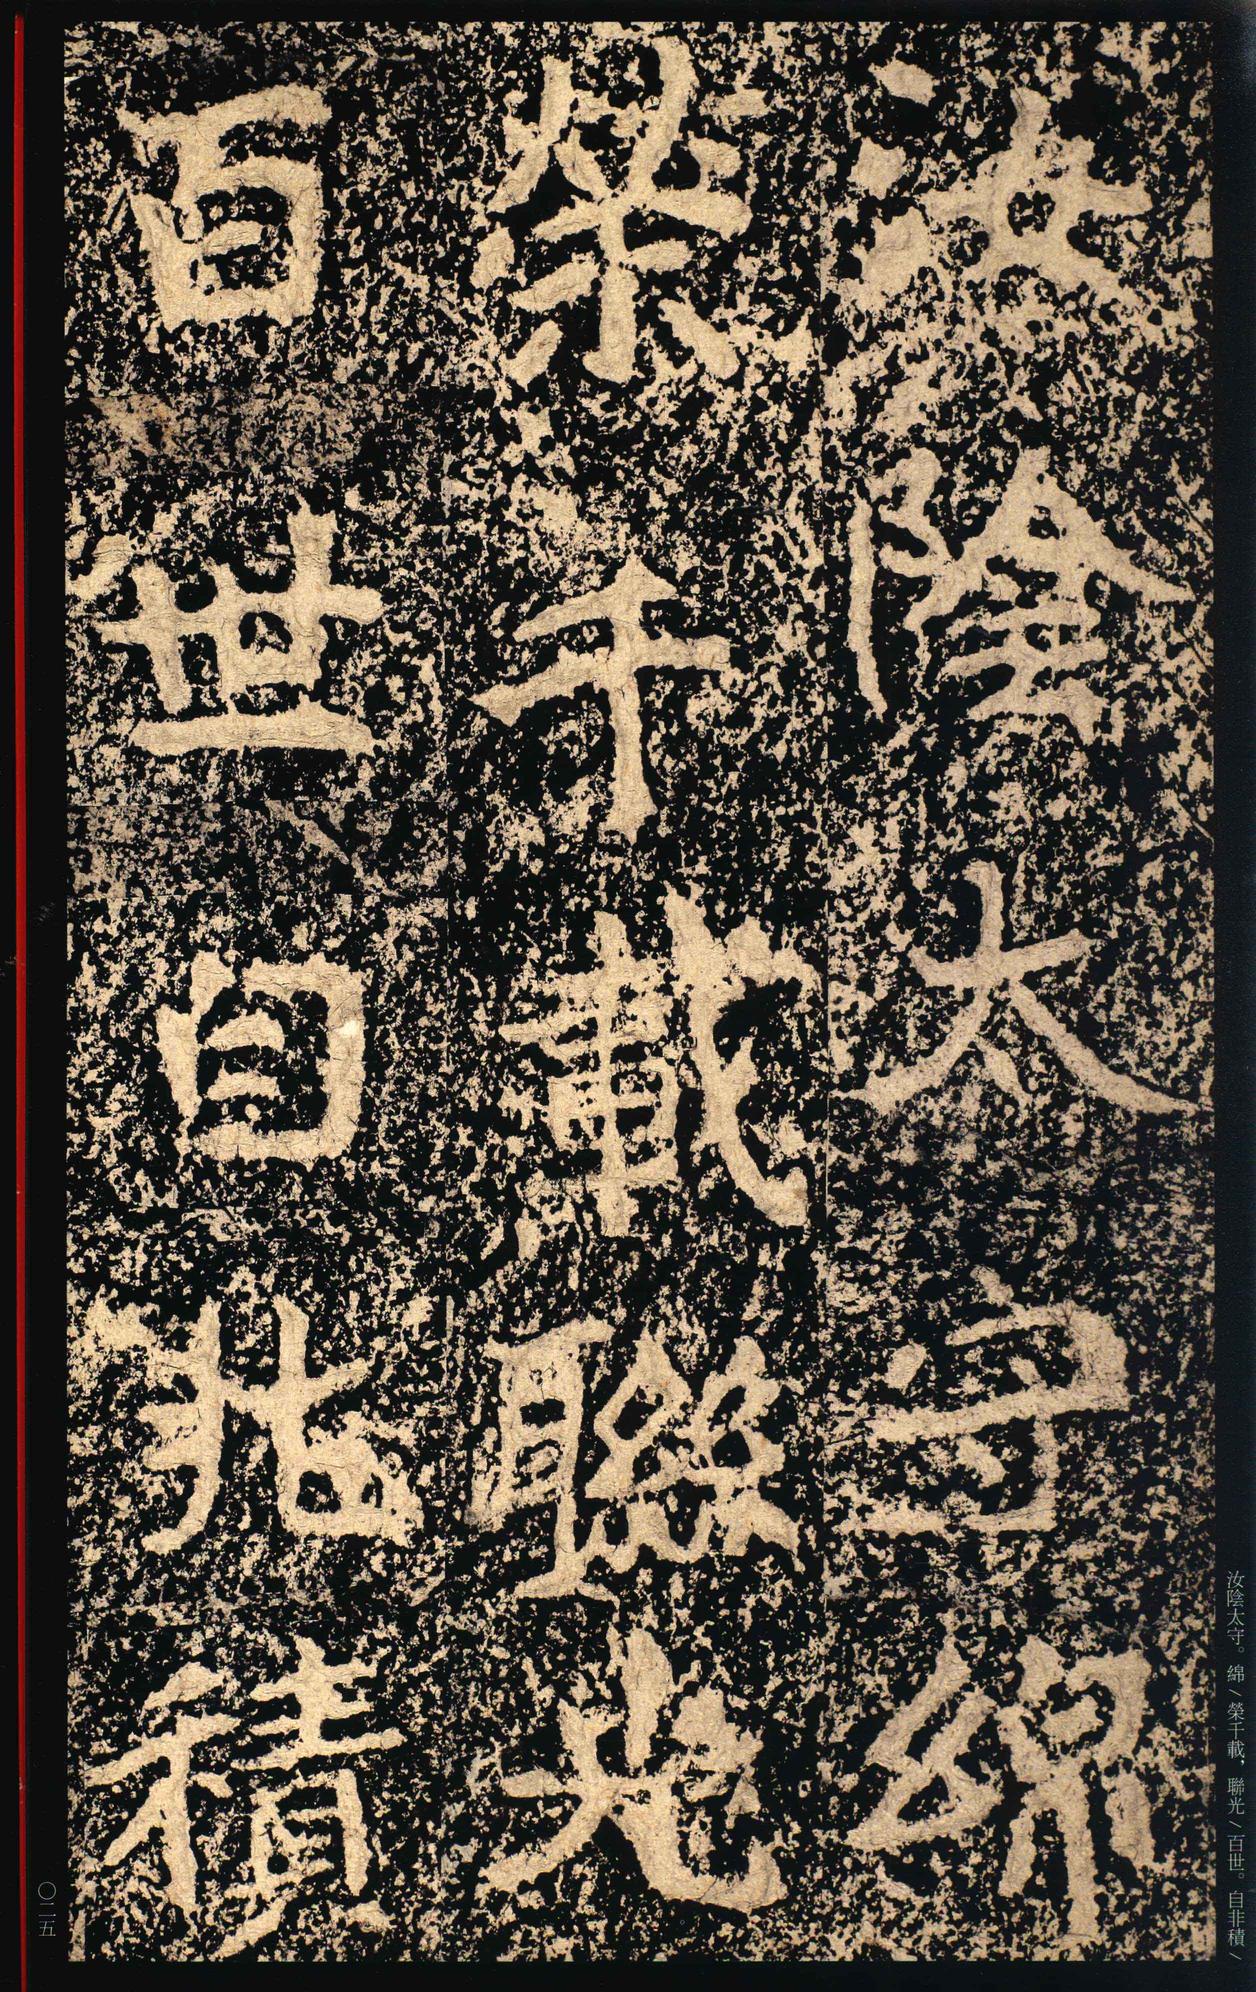 汝陰太守綿
榮千載聯光
百世自非積
汝陰太守。綿／榮千載，聯光／百世。自非積／
〇二五